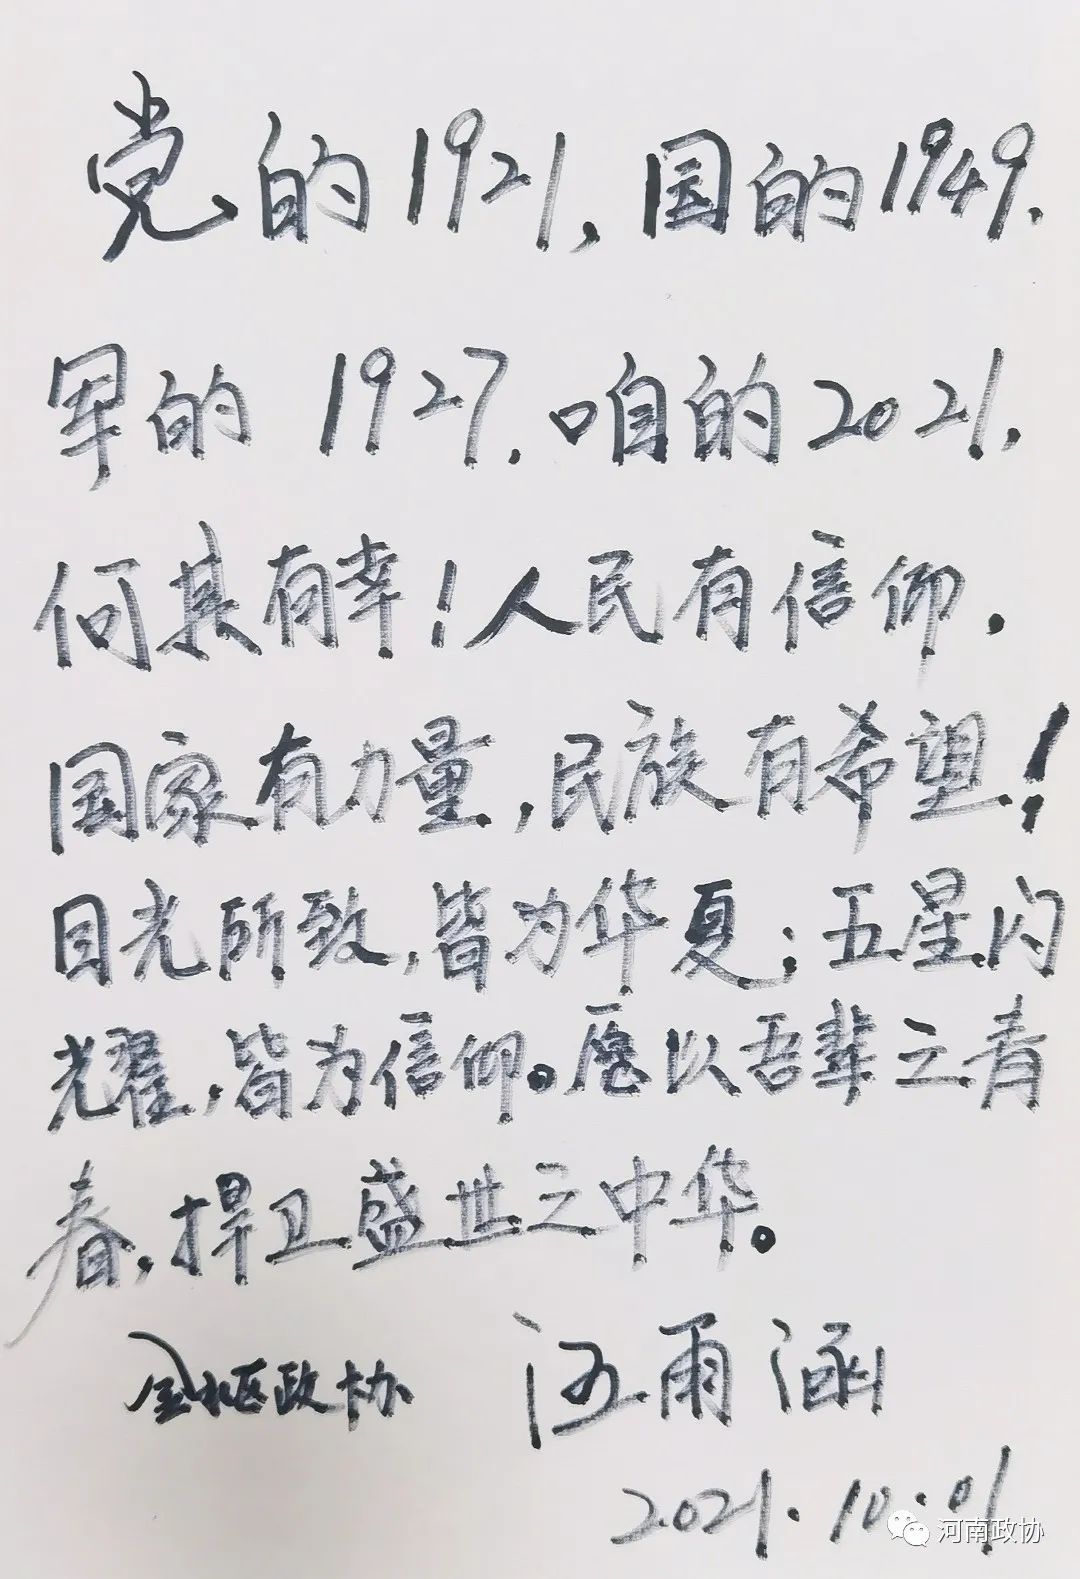 党的1921,国的1949.
军的 1927.咱的2021,
何其有幸!人民有信仰.
国家有力量,民族有希望!
目光所致,皆为华夏;五星闪
光耀,皆为信仰。愿以吾辈之青
春,捍卫盛世之中华。
政协 雨涵
2021.10.01
河南政协